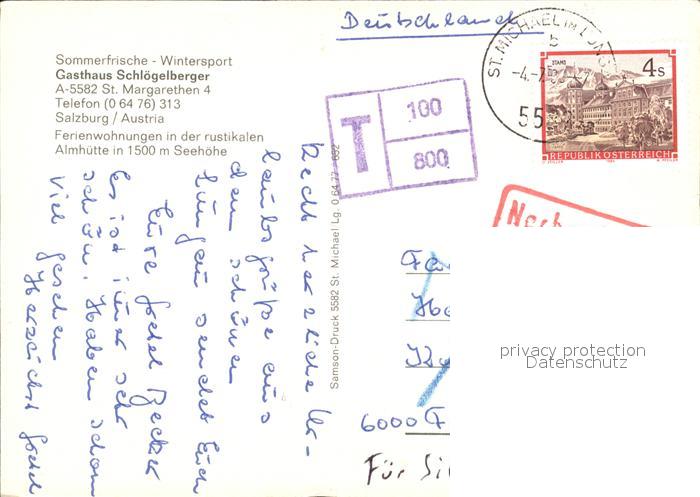 Deutschland
Sommerfrische - Wintersport
Gasthaus Schlögelberger
A-5582 St. Margarethen 4
Telefon (0 64 76) 313
Salzburg / Austria
Ferienwohnungen in der rustikalen
Almhütte in 1500 m Seehöhe
Recht herzliche Ur-
laubsgrüße aus
dem schönen
Lungau sendet Euch
Eure Gretel Becker
Es ist immer sehr
schön. Haben schon
viel gesehen
Herzlichst Gretel
Samson-Druck 5582 St. Michael Lg. 0 64 77 - 692
T
100
800
ST. MICHAEL IM LUNG
b
-4.-7.
55
STAMS
4 S
REPUBLIK ÖSTERREICH
Nach
Fa
Ha
6000 F
Für Si
privacy protection
Datenschutz